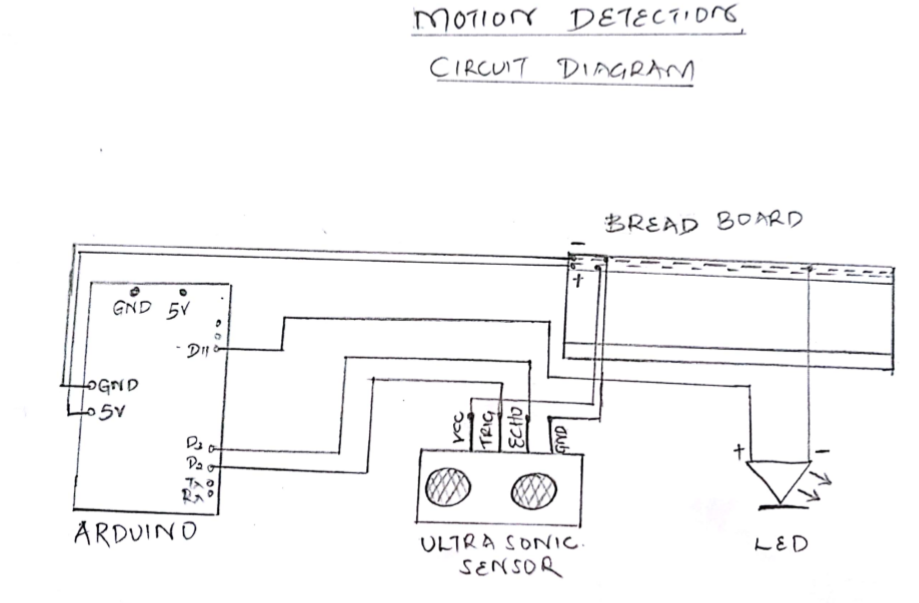 MOTION DETECTION,
CIRCUIT DIAGRAM
BREAD BOARD
−
+
GND 5V
D11
GND
5V
D3
D2
TX
RX
ARDUINO
VCC
TRIG
ECHO
GND
ULTRA SONIC.
SENSOR
+ −
LED